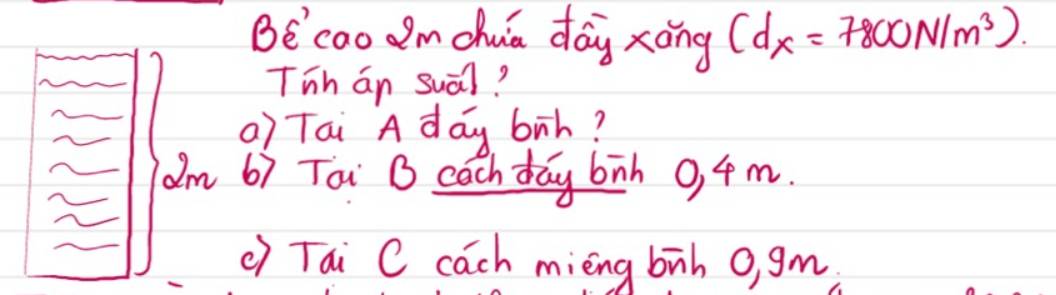 Bể cao 2m chứa đầy xăng (dx = 7800N/m³).
Tính áp suất?
a) Tại A đáy bình?
2m
b) Tại B cách đáy bình 0,4m.
c) Tại C cách miệng bình 0,9m.